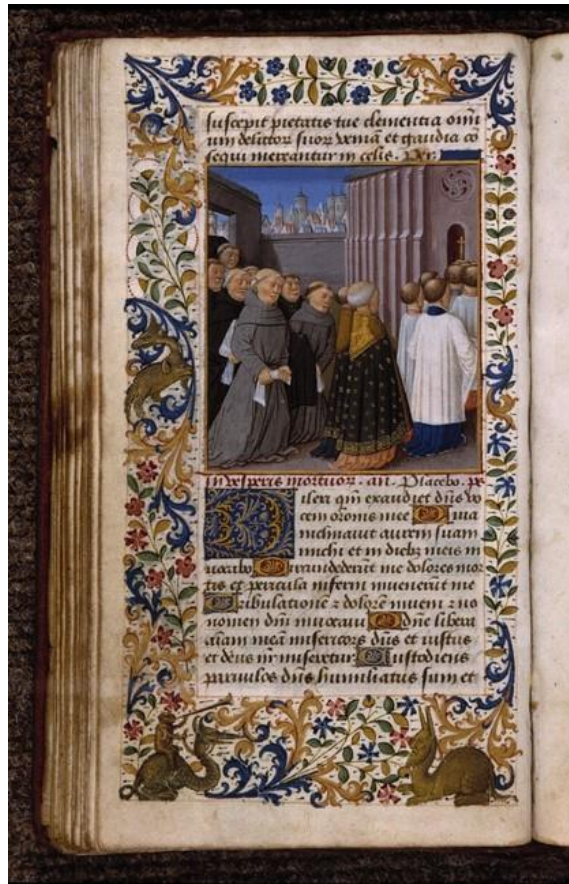 suscepit pietatis tue clementia omi
um delictor suor veniã et gaudia cõ
sequi mereantur in celis. Per.
In vesperis mortuor. an. Placebo. ps
Dilexi qm̃ exaudiet dñs vo
cem orõnis mee Quia
inclinavit aurem suam
michi et in dieb meis in
vocabo Circumdederũt me dolores mor
tis et pericula inferni invenerũt me
Tribulationẽ z dolorẽ inveni z no
nomen dñi invocavi O dñe libera
aĩam meã misericors dñs et iustus
et deus nr̃ miseretur Custodiens
parvulos dñs humiliatus sum et